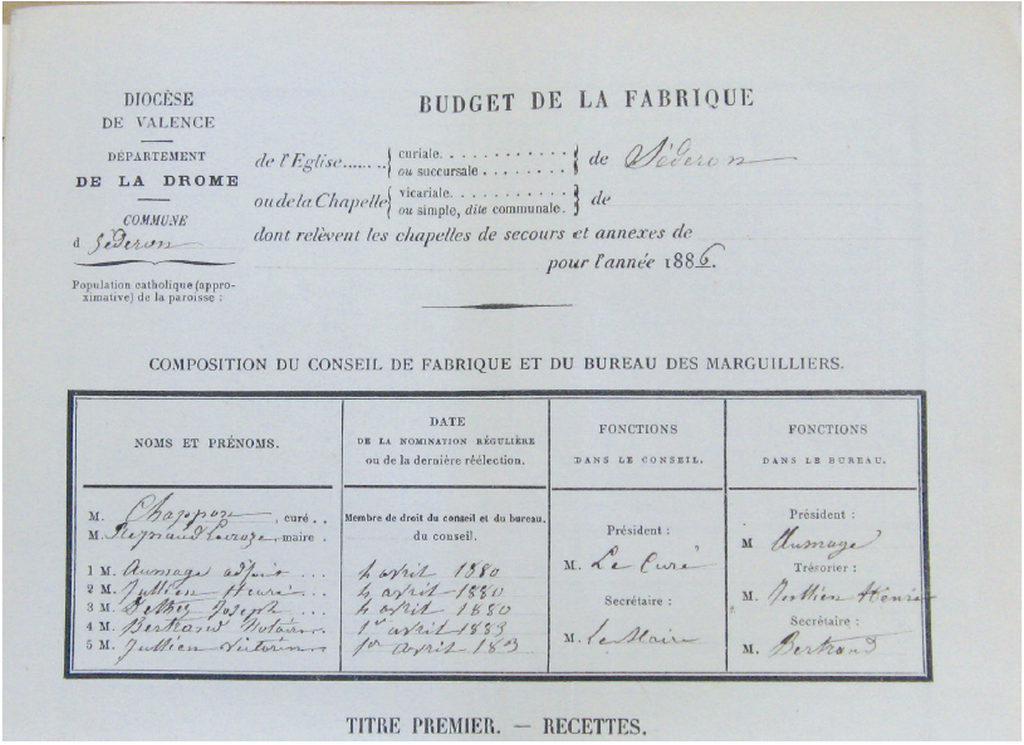 DIOCÈSE
DE VALENCE
DÉPARTEMENT
DE LA DROME
COMMUNE
d Séderon
Population catholique (appro-
ximative) de la paroisse :
BUDGET DE LA FABRIQUE
de l'Eglise....... { curiale. . . . . . . . . . . . } de Séderon
ou succursale . . . . . . . .
ou de la Chapelle { vicariale. . . . . . . . . . . } de
ou simple, dite communale.
dont relèvent les chapelles de secours et annexes de
pour l'année 1886.
COMPOSITION DU CONSEIL DE FABRIQUE ET DU BUREAU DES MARGUILLIERS.
NOMS ET PRÉNOMS.
M. Chappon, curé . .
M. Reynaud Lacroze, maire .
1 M. Aumage adjoint ...
2 M. Jullien Henri ...
3 M. Joseph ...
4 M. Bertrand Notaire
5 M. Jullien Victorin
DATE
DE LA NOMINATION RÉGULIÈRE
ou de la dernière réélection.
Membre de droit du conseil et du bureau.
du conseil.
4 avril 1880
4 avril 1880
4 avril 1880
1er avril 1883
1er avril 1883
FONCTIONS
DANS LE CONSEIL.
Président :
M. Le Curé
Secrétaire :
M. Le Maire
FONCTIONS
DANS LE BUREAU.
Président :
M Aumage
Trésorier :
M. Jullien Henri
Secrétaire :
M. Bertrand
TITRE PREMIER. — RECETTES.